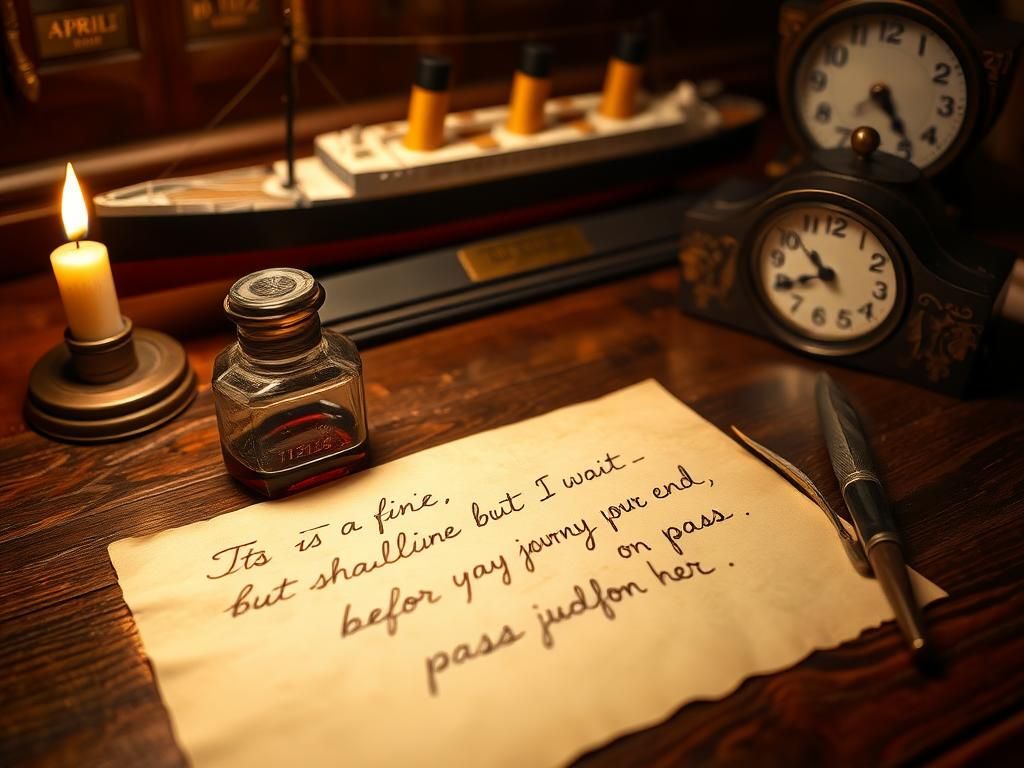 APRILE
Its is a fine,
but shallline but I wait–
befor yay journy your end,
on pass.
pass judfon her.
12
1
2
3
4
7
8
9
10
11
12
1
2
3
4
5
6
8
9
10
11